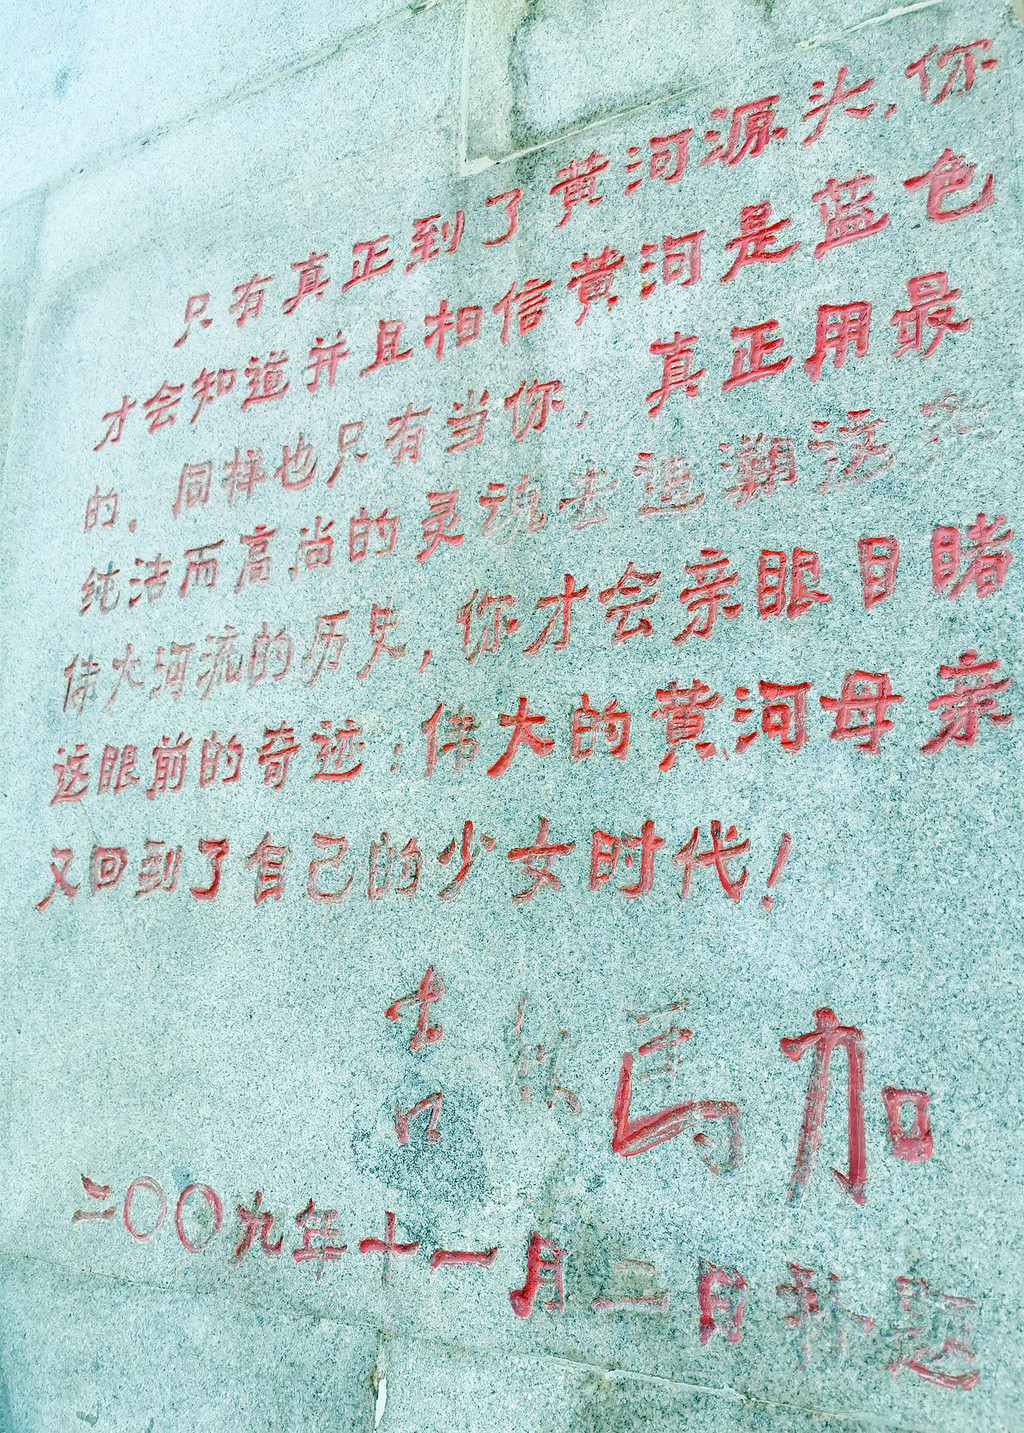 只有真正到了黄河源头,你
才会知道并且相信黄河是蓝色
的。同样也只有当你,真正用最
纯洁而高尚的灵魂去追溯这条
伟大河流的历史,你才会亲眼目睹
这眼前的奇迹:伟大的黄河母亲
又回到了自己的少女时代!
吉狄马加
二〇〇九年十一月二日补题